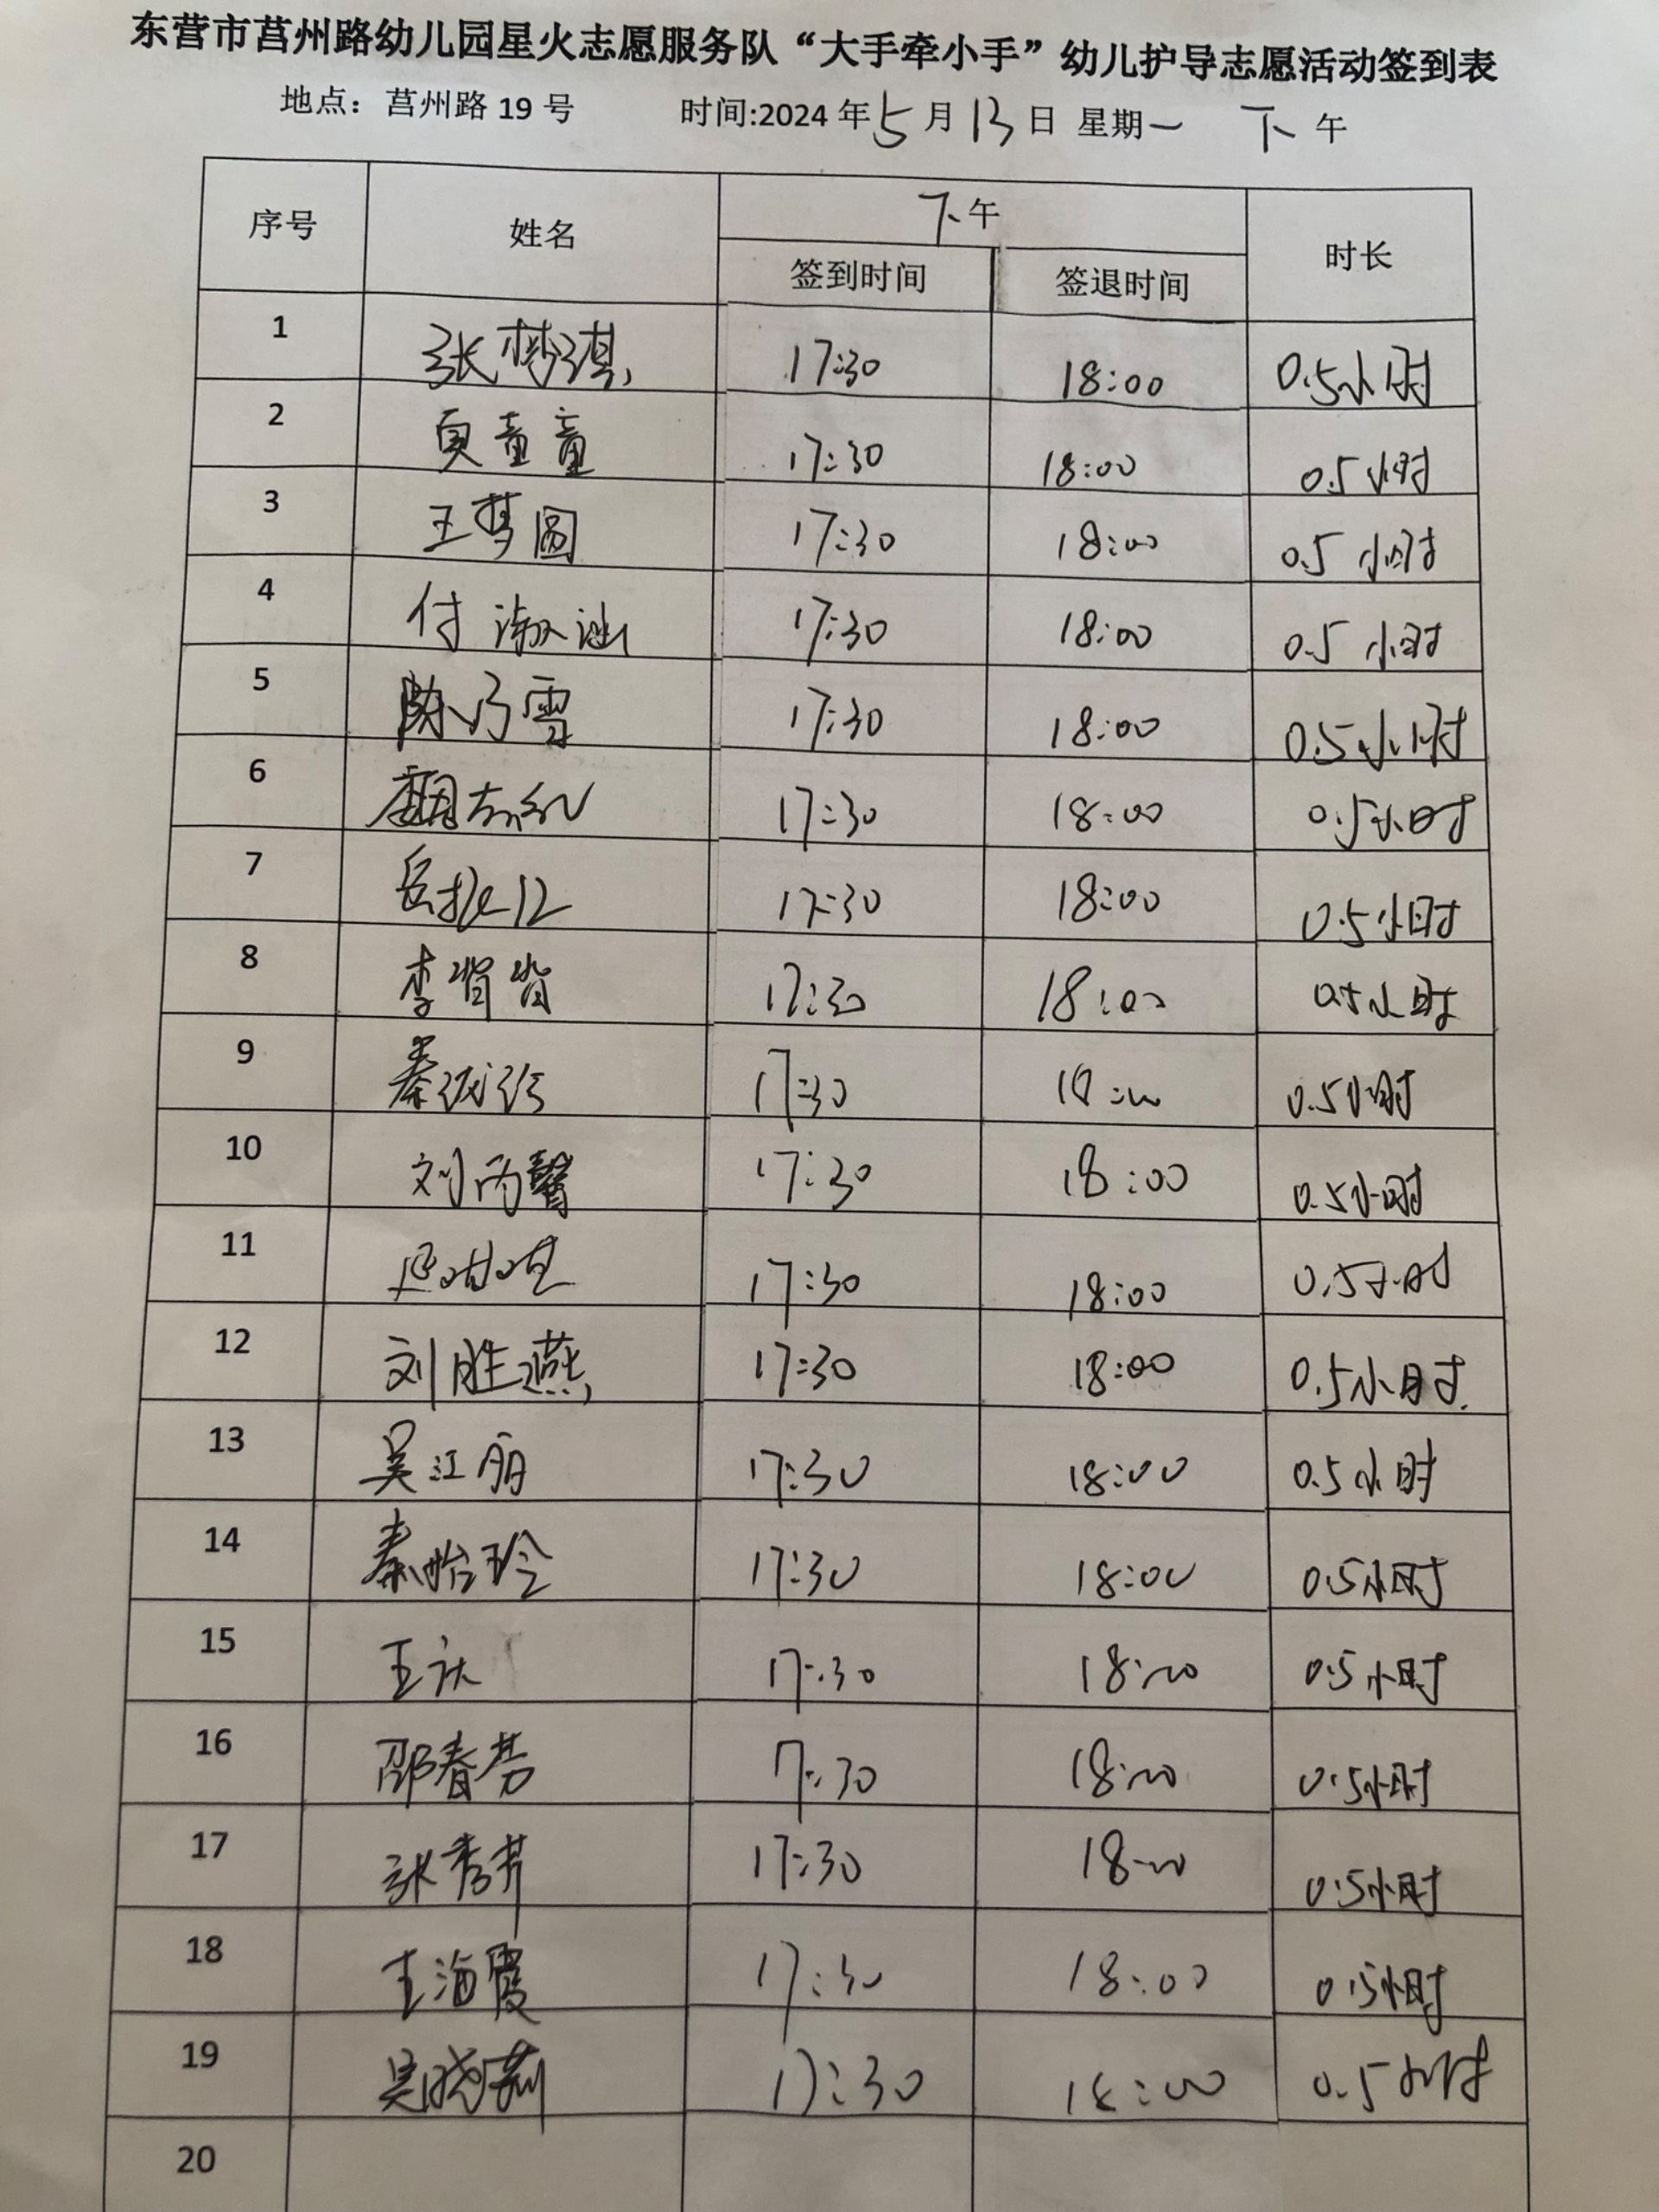 东营市莒州路幼儿园星火志愿服务队“大手牵小手”幼儿护导志愿活动签到表
地点：莒州路 19 号 时间:2024 年 5 月 13 日 星期一 下 午
序号 姓名 下午 时长
签到时间 签退时间
1 张梦琪 17:30 18:00 0.5小时
2 贠童童 17:30 18:00 0.5小时
3 王梦圆 17:30 18:00 0.5小时
4 付淑迪 17:30 18:00 0.5小时
5 陈乃雪 17:30 18:00 0.5小时
6 17:30 18:00 0.5小时
7 17:30 18:00 0.5小时
8 李肖肖 17:30 18:00 0.5小时
9 17:30 18:00 0.5小时
10 刘丙馨 17:30 18:00 0.5小时
11 17:30 18:00 0.5小时
12 刘胜燕 17:30 18:00 0.5小时
13 吴江丽 17:30 18:00 0.5小时
14 秦怡玲 17:30 18:00 0.5小时
15 17:30 18:00 0.5小时
16 邵春芳 17:30 18:00 0.5小时
17 张秀芹 17:30 18:00 0.5小时
18 王海霞 17:30 18:00 0.5小时
19 吴晓莉 17:30 18:00 0.5小时
20